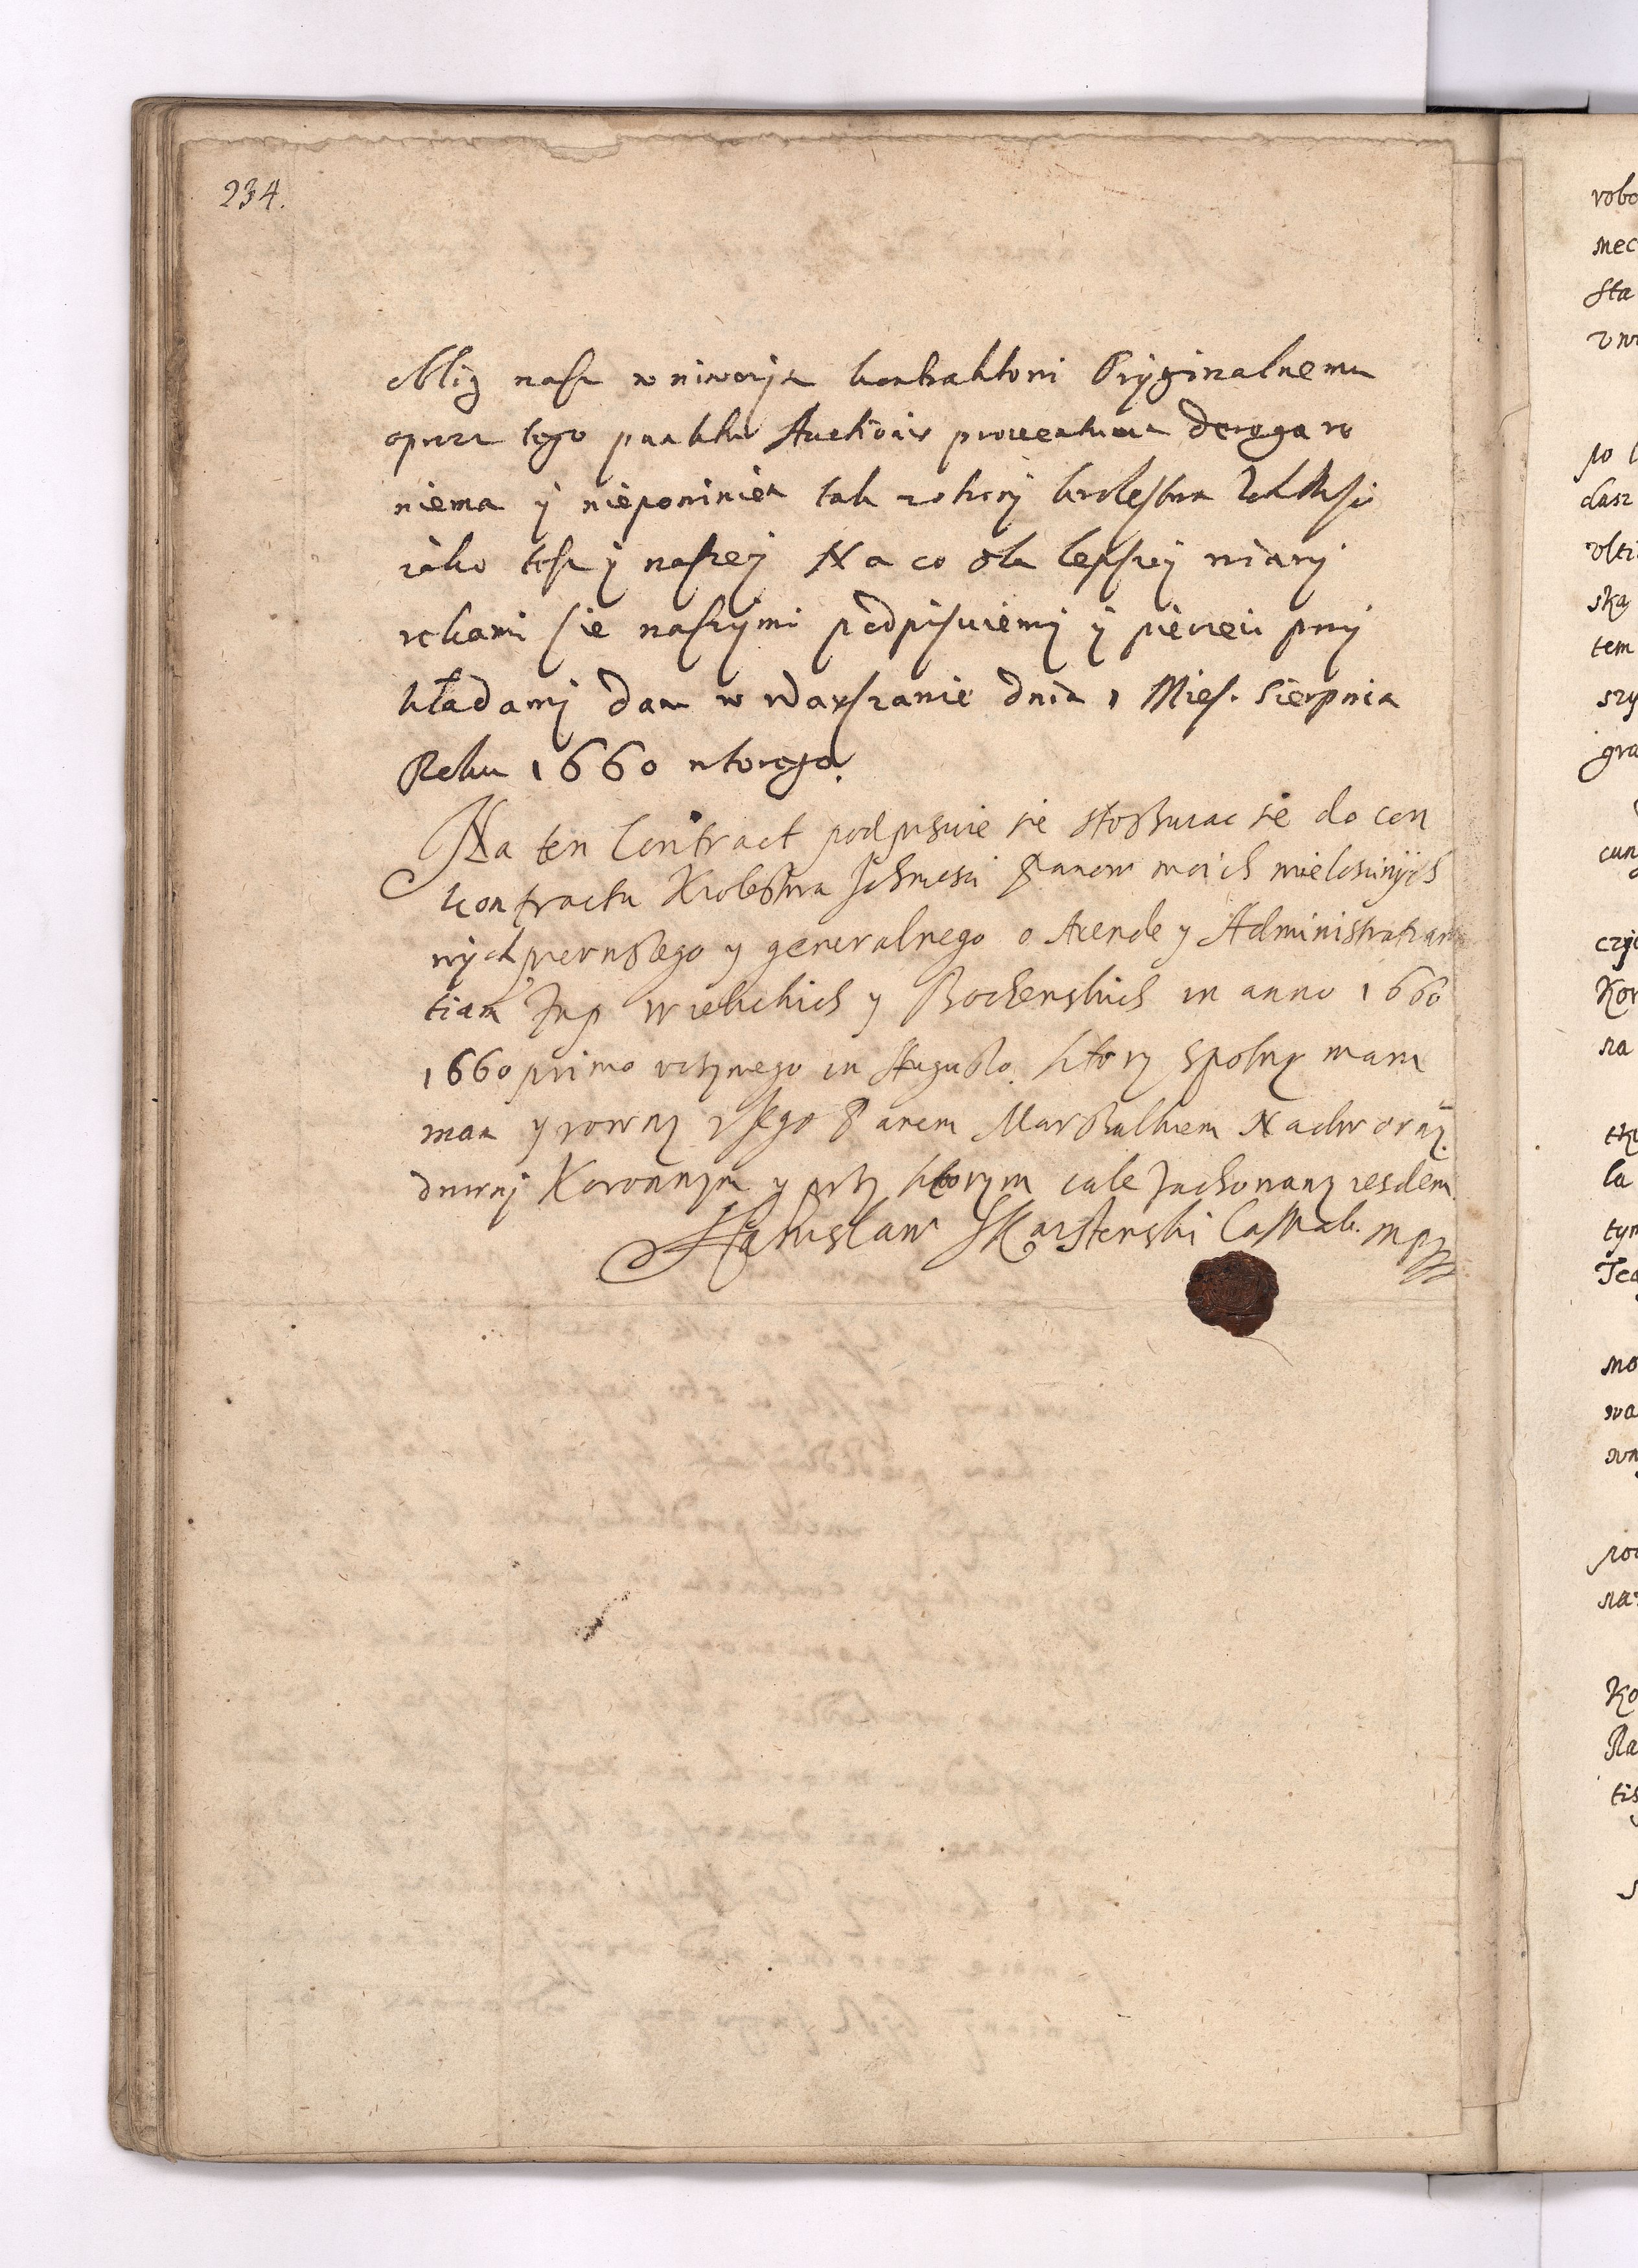 234.
oblig nasz w niwczym kontraktowi Oryginalnemu
oprucz tego punktu Auctionis proventuum derogawo
niema y niepowinien tak z strony krolestwa Ich Msci
iako tesz y naszej Na co dla lepszej wiary
rekami sie naszymi podpisuiemy y pieczęci przy
kładamy Dan w Warszawie dnia 1 Mies. Sierpnia
Roku 1660 wtorego.
Na ten Contract podpisuie sie stosuiac sie do con
kontractu Krolestwa Ichmcsi Panow moich mielosciwych
wych pierwszego y generalnego o Arende y Administratiam
tiam Zup Wielickich y Bochenskich in anno 1660
1660 primo uczynego in Augusto. ktory spolny mam
mam y rowny z Jego Panem Marszalkiem Nadworny.
dwornj Koronnym y przy ktorym cale zachowany iestem.
Stanislaw Skarszewski Casztab. mpp
robo
mec
sta
po l
dasz
ska
tem
szy
gra
cun
Kor
na
la
tym
mo
wa
Ko
Ra
tis